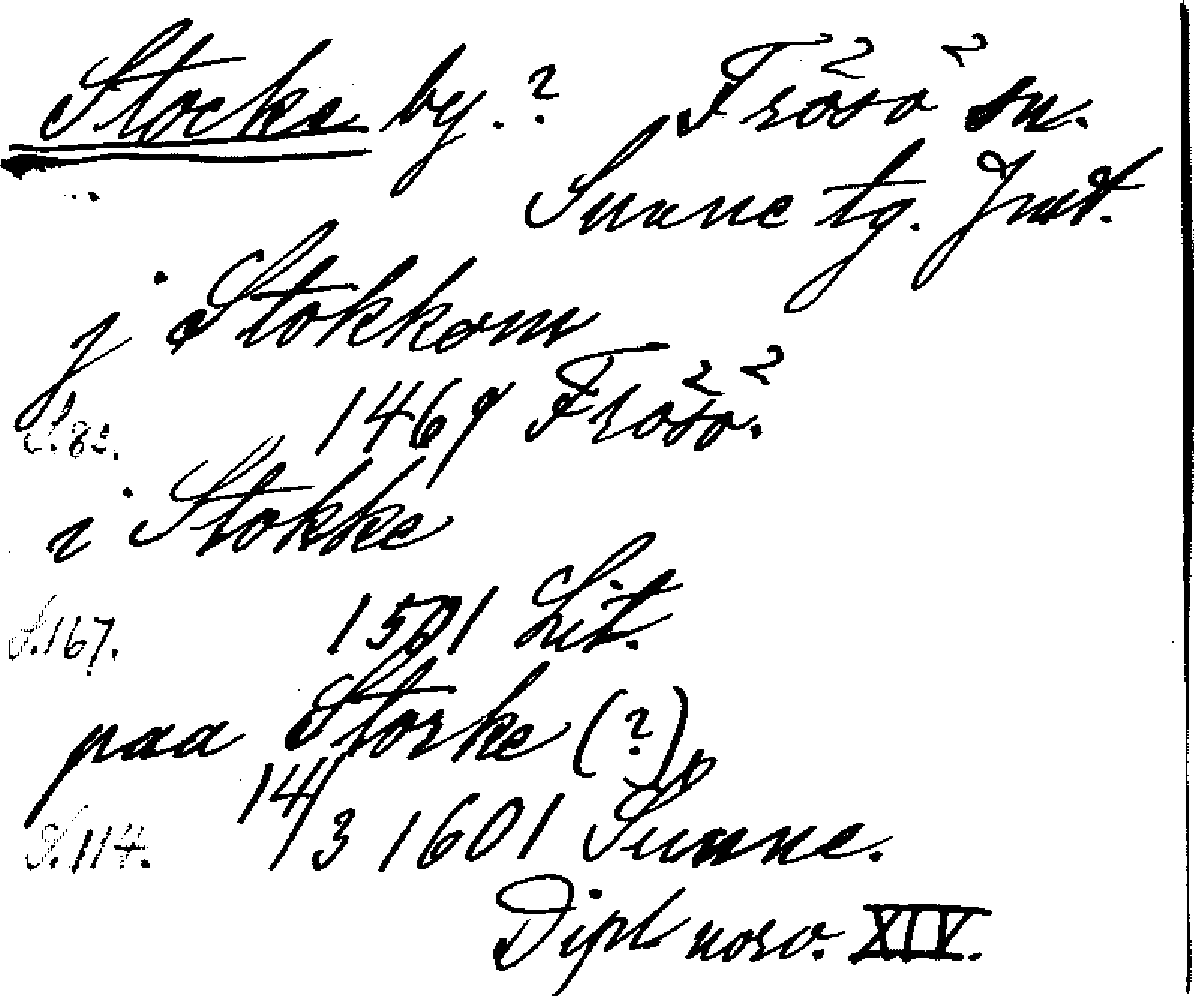 Stocke by.? Frösö sn.
Sunne tg. Jmt.
j Stokkom
S. 82. 1467 Frösö.
i Stokke
S. 167. 1501 Lit.
paa Storke (?)
S. 114. 14/3 1601 Sunne.
Dipl norv. XIV.